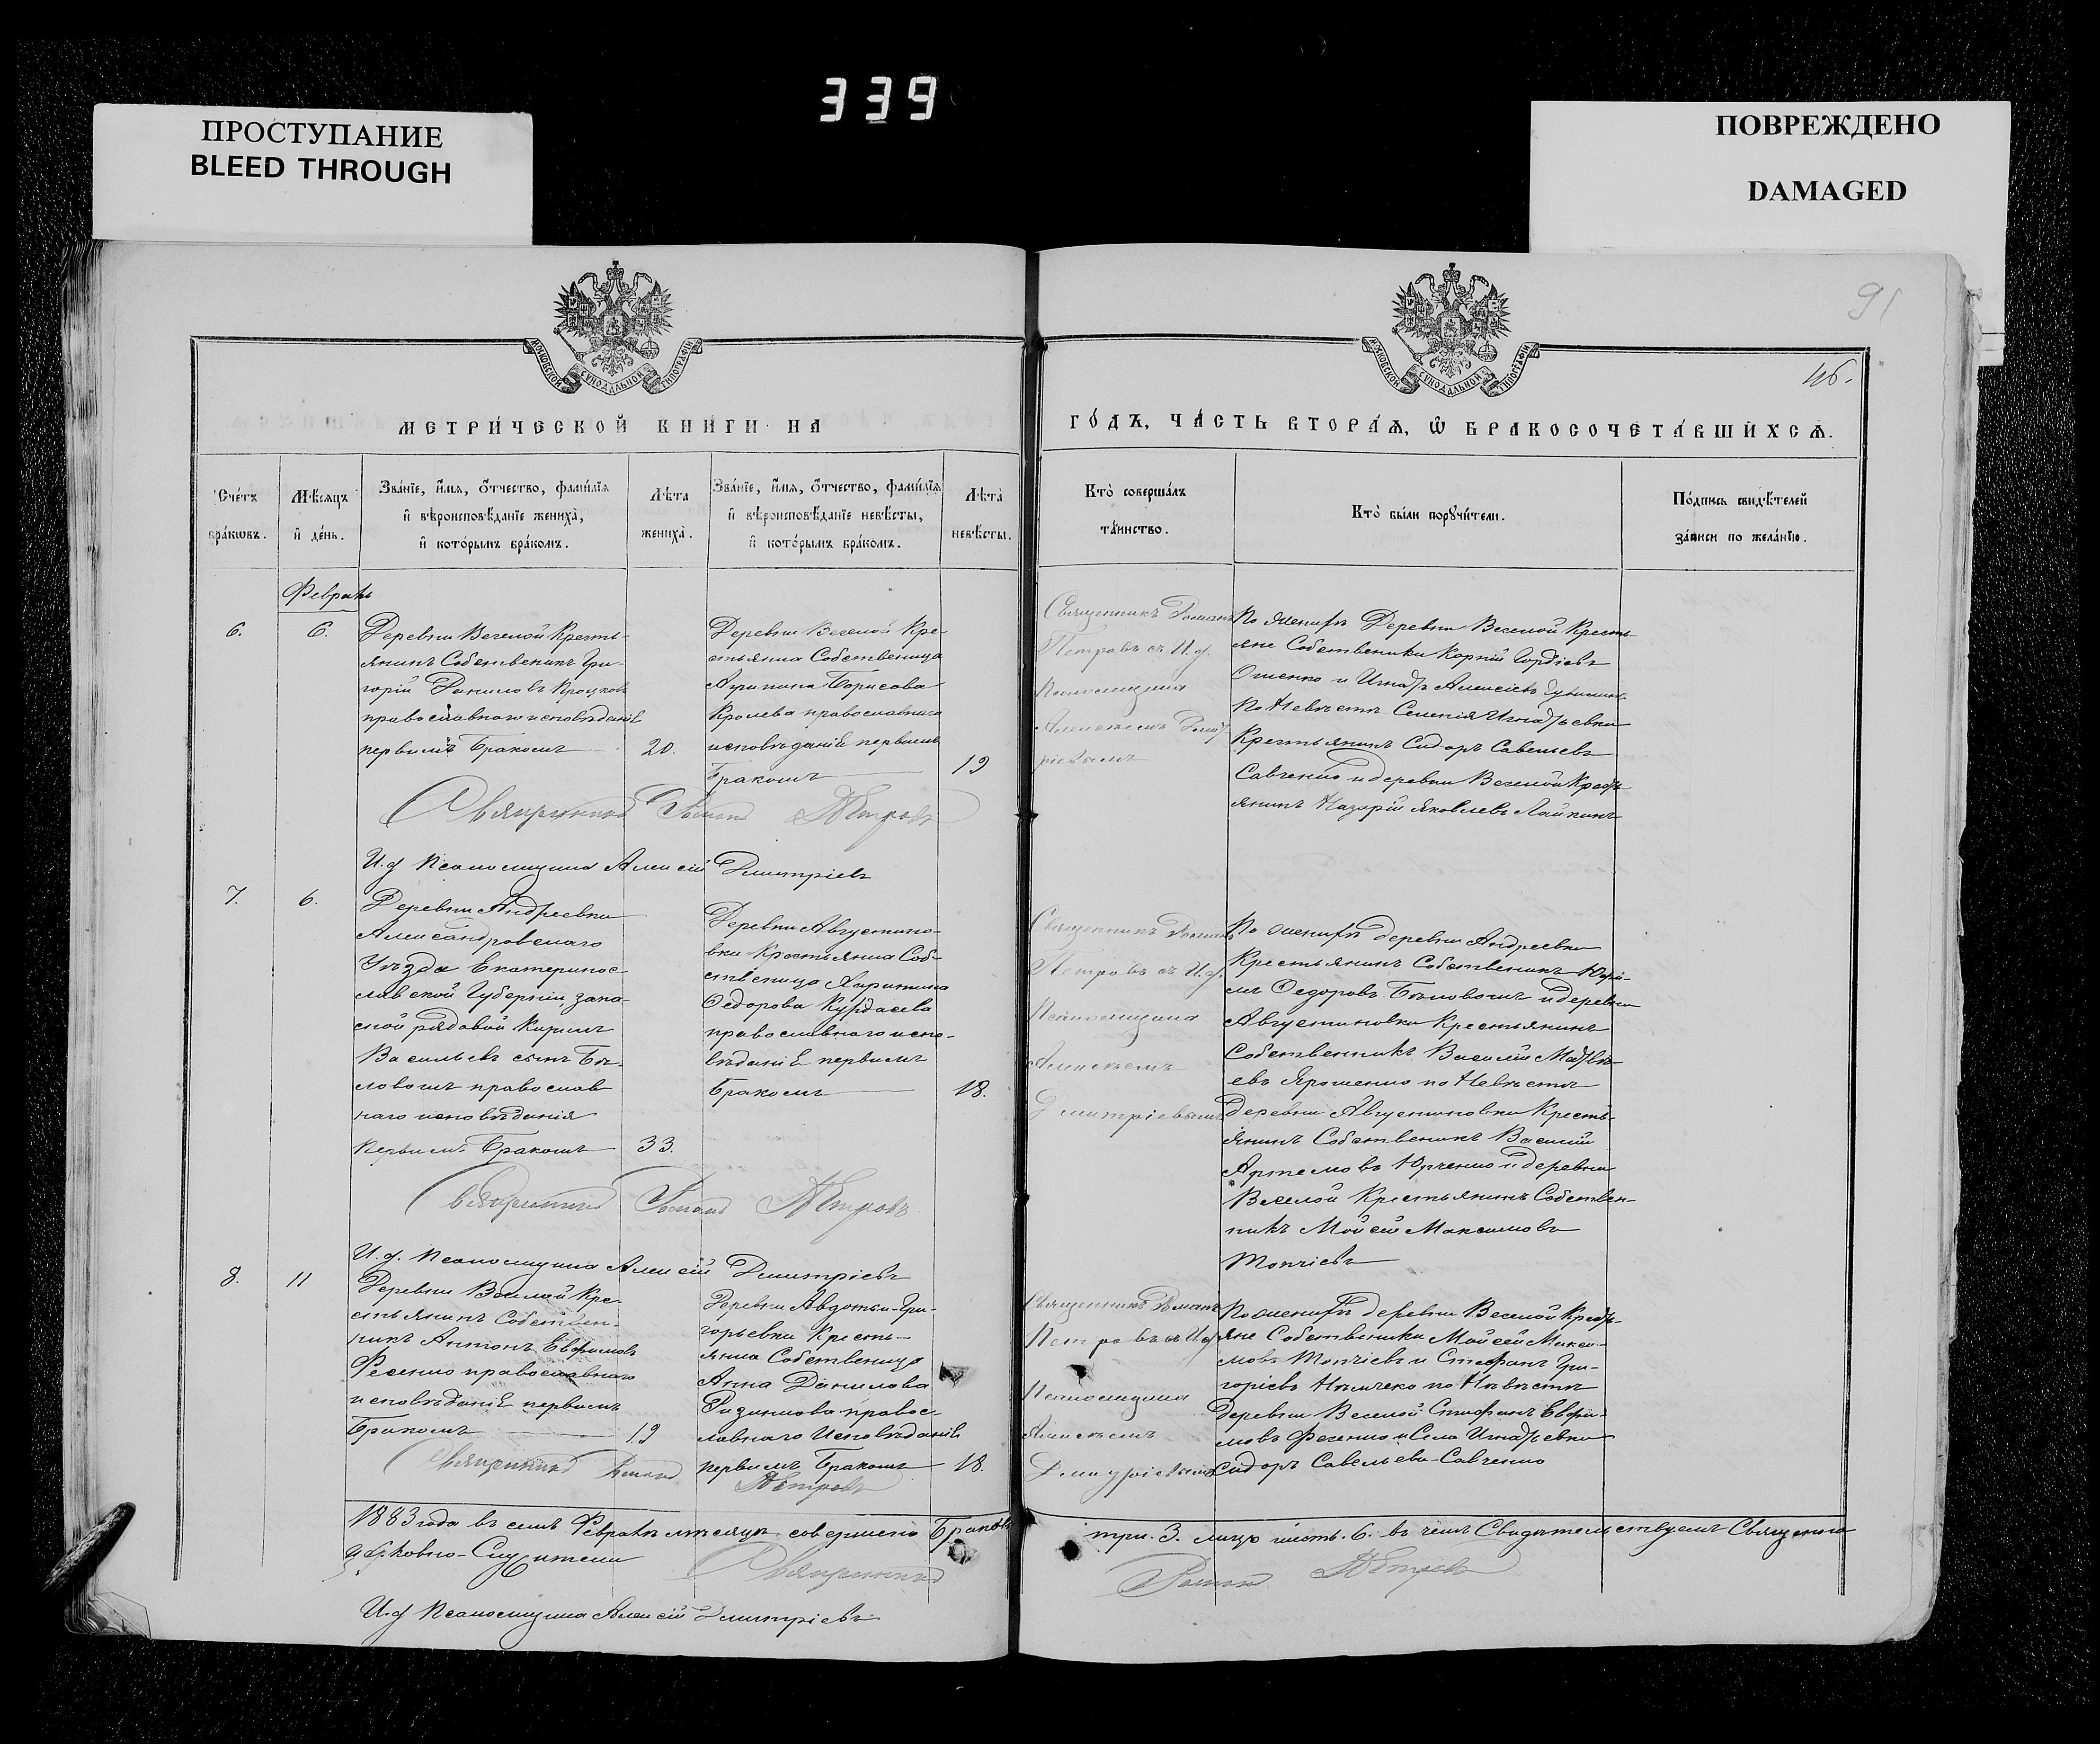 339
ПРОСТУПАНИЕ
BLEED THROUGH
ПОВРЕЖДЕНО
DAMAGED
91
46.
МОСКОВСКОЙ СѴНОДАЛЬНОЙ ТИПОГРАФІИ
МОСКОВСКОЙ СѴНОДАЛЬНОЙ ТИПОГРАФІИ
МЕТРИ́ЧЕСКОЙ КНИ́ГИ НА
ГО́ДЪ, ЧА́СТЬ ВТОРА́Я, Ѡ БРАКОСОЧЕТА́ВШИХСЯ.
Сче́тъ бра́кѡвъ.
Мѣ́сяцъ и де́нь.
Зва́нїе, и́мя, о́тчество, фами́лїя
и вѣроисповѣ́данїе жениха̀,
и кото́рымъ бра́комъ.
Лѣ́та жениха̀.
Зва́нїе, и́мя, о́тчество, фами́лїя
и вѣроисповѣ́данїе невѣ́сты,
и кото́рымъ бра́комъ.
Лѣ́та невѣ́сты.
Кто̀ соверша́лъ
та́инство.
Кто̀ бы́ли поруч́ители.
По́дпись свидѣ́телей
за́писи по жела́нїю.
Февраль
6.
6.
Деревни Веселой Кресть-
янинъ Собственикъ Гри-
горій Даниловъ
православнаго исповѣданіе
первымъ бракомъ
20.
Деревни Веселой Кре-
стьянка Собственица
Агрипина Борисова
Кролева православнаго
исповѣданіе первымъ
бракомъ
19
Священникъ Романъ
Петровъ съ И.д.
Псаломщика
Алексѣемъ Дмит-
ріевымъ
По женихѣ Деревни Веселой Кресть-
яне Собственики Корній Гордіевъ
Отенко и Игнатъ Алексіевъ
по Невѣстѣ Селенія Игнатьевки
Крестьянинъ Сидоръ Савельевъ
Савченко и деревни Веселой Кресть-
янинъ Назарій Яковлевъ Лайкинъ
Священникъ Романъ Петровъ
И.д Псаломщика Алексій Дмитріевъ
7.
6.
Деревни Андреевки
Александровскаго
Уѣзда Екатеринос-
лавской Губерніи, запа-
сной рядовой Кирилъ
Васильевъ сынъ Бѣ-
ловолъ православ
наго исповѣданія
первымъ бракомъ
33.
Деревни Августино-
вки Крестьянка Соб-
ственица Харитина
Федорова Курдаева
православнаго испо-
вѣданіе первымъ
бракомъ
18.
Священникъ Романъ
Петровъ съ И.д.
Псаломщика
Алексѣемъ
Дмитріевымъ
По женихѣ деревни Андреевки
Крестьянинъ Собственикъ
Федоровъ Бѣловолъ и деревни
Августиновки Крестьянинъ
Собственникъ Василій Матвѣ-
евъ Ярошенко по Невѣстѣ
Деревни Августиновки Кресть-
янинъ Собственикъ Василій
Артемовъ Юрченко и деревни
Веселой Крестьянинъ Собствен-
никъ Мойсей Максимовъ
Топчіевъ
Священникъ Романъ Петровъ
И.д. Псаломщика Алексій Дмитріевъ
8.
11
Деревни Веселой Кре-
стьянинъ Собствен-
никъ Антонъ Евфимовъ
Фесенко православнаго
исповѣданіе первымъ
бракомъ
19
Деревни Авдотьи-Гри-
горьевки Кресть-
янка Собственица
Анна Данилова
православ-
лавнаго Исповѣданіе
первымъ бракомъ
18.
Священникъ Романъ
Петровъ съ И.д
Псаломщика
Алексѣемъ
Дмитріевымъ
По женихѣ деревни Веселой Кресть-
яне Собственики Мойсей Макси-
мовъ Топчіевъ и Стефанъ Гри-
горіевъ Нѣмчено по Невѣстѣ
Деревни Веселой Стефанъ Евфи-
мовъ Фесенко и Села Игнатьевки
Сидоръ Савельевъ Савченко
Священникъ Романъ Петровъ
1883 года въ семъ Февралѣ мѣсяцѣ совершено Браковъ три. 3. лицъ шесть. 6. въ чемъ Свидѣтельствуемъ Священно
церковно-Служители
Священникъ Романъ Петровъ
И.д Псаломщика Алексій Дмитріевъ